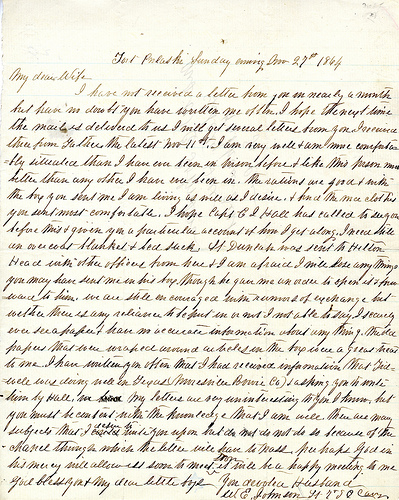 Fort Pulaski Sunday evning Nov 27th 1864
My dear Wife
I have not received a letter from you in nearly a month
but have no doubt you have written me often. I hope the next time
the mail is delivered to us I will get several letters from you I received
three from Father the latest Nov 11th. I am very well & am more comforta-
bly situated than I have ever been in prison before & like this prison much
better than any other I have ever been in. the rations are good & with
the box you sent me I am living as well as I desire, & find the nice clothes
you sent most comfortable. I hope Capt C I Hall has called to see you
before this & given you a particular account of how I get along. I need still
an overcoat blanket & bed sack. Lt Duncan was sent to Hilton
Head with other officers from here & I am afraid I will lose any thing
you may have sent me in his box, though he gave me an order to open it & for-
ward to him. we are still encouraged with rumors of exchange but
wether there is any reliance to be put in or not I not able to say I scarcely
ever see a paper & have no accurate information about any thing. the old
papers that were wraped around articles in the box were a great treat
to me. I have written you often that I had received information that
well was doing well in Texas Bowie Co) & asking you to
by Hall, my letters are very uninteresting to you I know, but
you must be content with the knowledge that I am well. there are many
subjects that I desire to write you upon but do not do so because of the
Chanel through which the letter will have to pass. perhaps God in
his mercy will allow us soon to meet, it will be a happy meeting to me
God bless you & my dear little boys
Your devoted Husband
W E Johnson 7 S C Cav